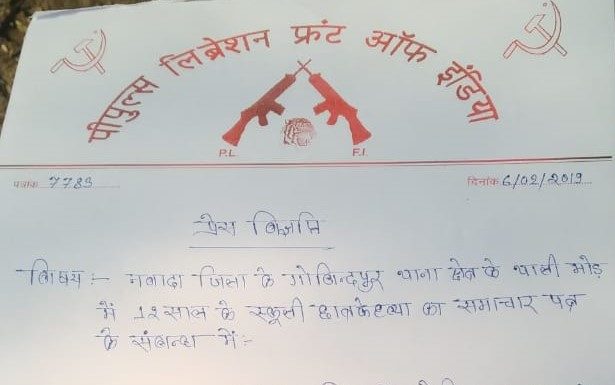 पीपुल्स लिब्रेशन फ्रंट ऑफ इंडिया
P.L. F.I.
पत्रांक 7789 दिनांक 6/02/2019
प्रेस विज्ञप्ति
विषय :- नवादा जिला के गोबिन्दपुर थाना क्षेत्र के थाली मोड़
में 12 साल के स्कूली छात्र के हत्या का समाचार पत्र
के संबन्ध में:-